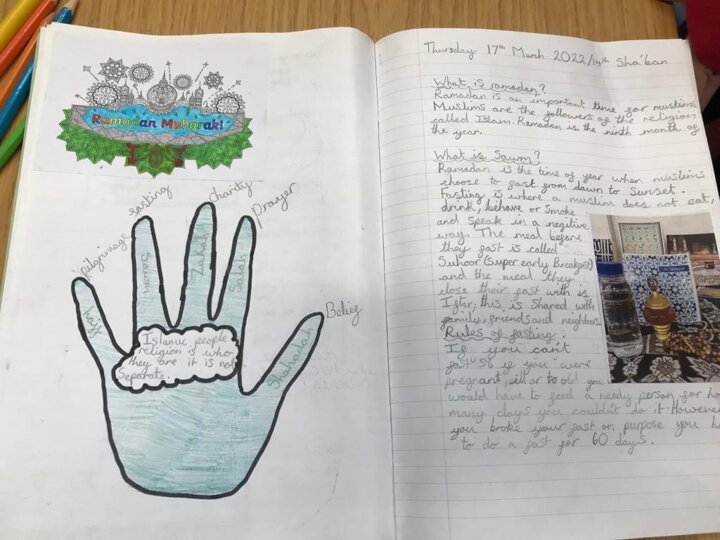 Ramadan Mubarak!
pilgrimage
fasting
charity
Prayer
Belief
hajj
Sawm
Zakat
Salah
Shahadah
Islamic people
religion is who
they are it is not
Separate.
Thursday 17th March 2022/14th Sha'ban
What is ramadan?
Ramadan is an important time for muslims
Muslims are the followers of the religion
called Islam. Ramadan is the ninth month of
the year.
What is Sawm?
Ramadan is the time of year when muslims
choose to fast from dawn to Sunset.
Fasting is where a muslim does not eat,
drink, behave or smoke
and speak in a negative
way. The meal before
they fast is called
Suhoor (Super early Breakfast)
and the meal they
close their fast with is
Iftar, this is shared with
family, friends and neighbors
Rules of fasting.
If you can't
fast so if you were
pregnant, ill or to old you
would have to feed a needy person for how
many days you couldn't do it. However
you broke your fast on purpose you ha
to do a fast for 60 days.